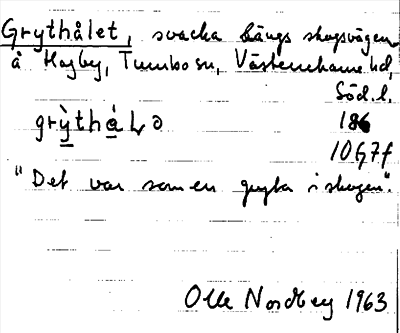 Grythålet, svacka längs skogsvägen
å Högby, Tumbo sn, Västerrekarne hd,
Söd.l.
grỳthåLə 186
10G7f
"Det var som en gryta i skogen".
Olle Nordberg 1963